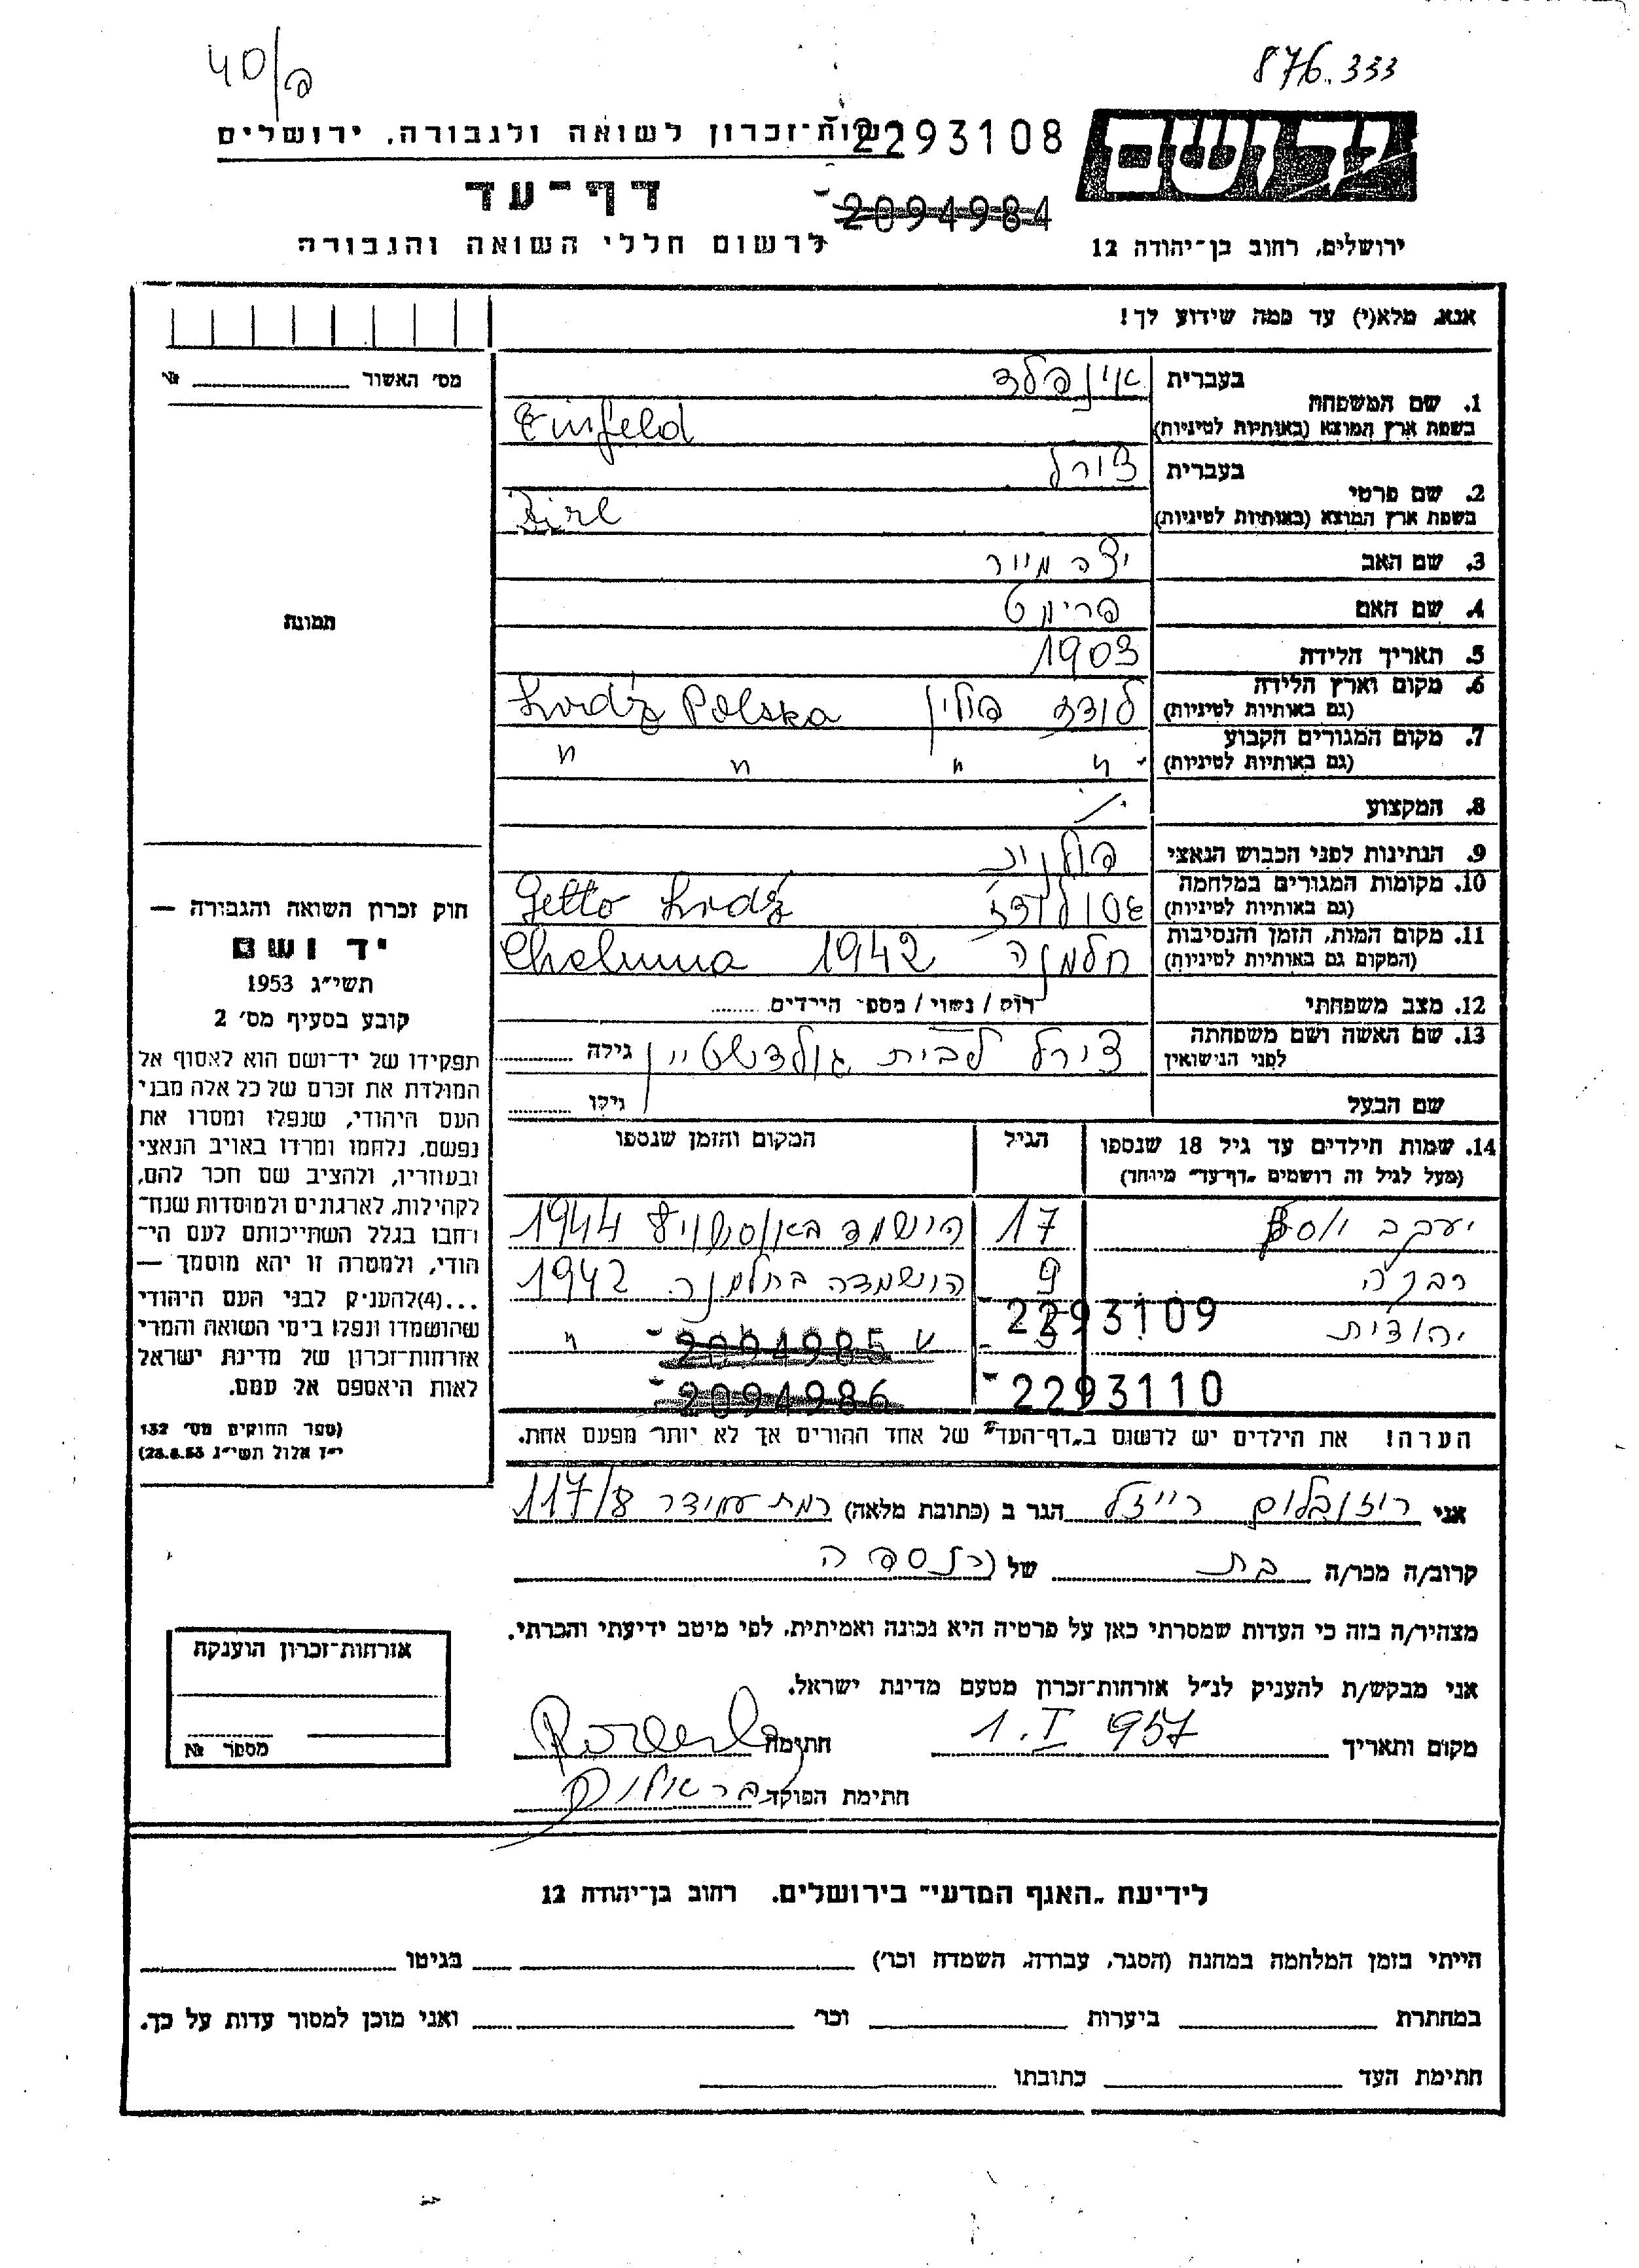 40/פ
876.333
רשות-זכרון לשואה ולגבורה, ירושלים
2293108
יד ושם
דף-עד
2094984
לרשום חללי השואה והגבורה
ירושלים, רחוב בן-יהודה 12
אנא, מלא(י) עד כמה שידוע לך!
מס' האשור № 
1. שם המשפחה
בעברית אינפלד
בשפת ארץ המוצא (באותיות לטיניות) Einfeld
2. שם פרטי
בעברית צירל
בשפת ארץ המוצא (באותיות לטיניות)
3. שם האב
4. שם האם
5. תאריך הלידה 1903
6. מקום וארץ הלידה
(גם באותיות לטיניות) לודז פולין Lodź Polska
7. מקום המגורים הקבוע
(גם באותיות לטיניות) " " " "
8. המקצוע
9. הנתינות לפני הכבוש הנאצי פולנית
10. מקומות המגורים במלחמה
(גם באותיות לטיניות) גטו לודז Getto Lodź
11. מקום המות, הזמן והנסיבות
(המקום גם באותיות לטיניות) חלמנה 1942 Chelmna
12. מצב משפחתי רוק / נשוי / מספר הילדים
13. שם האשה ושם משפחתה
לפני הנישואין צירל לבית גולדשטיין גילה
שם הבעל גילו
14. שמות הילדים עד גיל 18 שנספו
(מעל לגיל זה רושמים "דף-עד" מיוחד)
הגיל
המקום והזמן שנספו
יעקב יוסף 17 הושמד באושויץ 1944
רבקה 9 הושמדה בחלמנה 1942
יהודית 3 " "
2293109
2094985
2293110
2094986
הערה! את הילדים יש לרשום ב"דף-העד" של אחד ההורים אך לא יותר מפעם אחת.
תמונה
חוק זכרון השואה והגבורה —
יד ושם
תשי"ג 1953
קובע בסעיף מס' 2
תפקידו של יד-ושם הוא לאסוף אל
המולדת את זכרם של כל אלה מבני
העם היהודי, שנפלו ומסרו את
נפשם, נלחמו ומרדו באויב הנאצי
ובעוזריו, ולהציב שם וזכר להם,
לקהילות, לארגונים ולמוסדות שנח-
רבו בגלל השתייכותם לעם הי-
הודי, ולמטרה זו יהא מוסמך —
...(4)להעניק לבני העם היהודי
שהושמדו ונפלו בימי השואה והמרי
אזרחות-זכרון של מדינת ישראל
לאות היאספם אל עמם.
(ספר החוקים מס' 132
י"ז אלול תשי"ג 28.8.53)
אני רוזנבלום רייזל הגר ב (כתובת מלאה) רמת עמידר 117/8
קרוב/ה מכר/ה בת של הנספה
מצהיר/ה בזה כי העדות שמסרתי כאן על פרטיה היא נכונה ואמיתית, לפי מיטב ידיעתי והכרתי.
אני מבקש/ת להעניק לנ"ל אזרחות-זכרון מטעם מדינת ישראל.
מקום ותאריך 1.I 957 חתימה
חתימת הפוקד
אזרחות-זכרון הוענקה
מספר №
לידיעת "האגף המדעי" בירושלים, רחוב בן-יהודה 12
הייתי בזמן המלחמה במחנה (הסגר, עבודה, השמדה וכו') בגיטו
במחתרת ביערות וכו' ואני מוכן למסור עדות על כך.
חתימת העד כתובתו